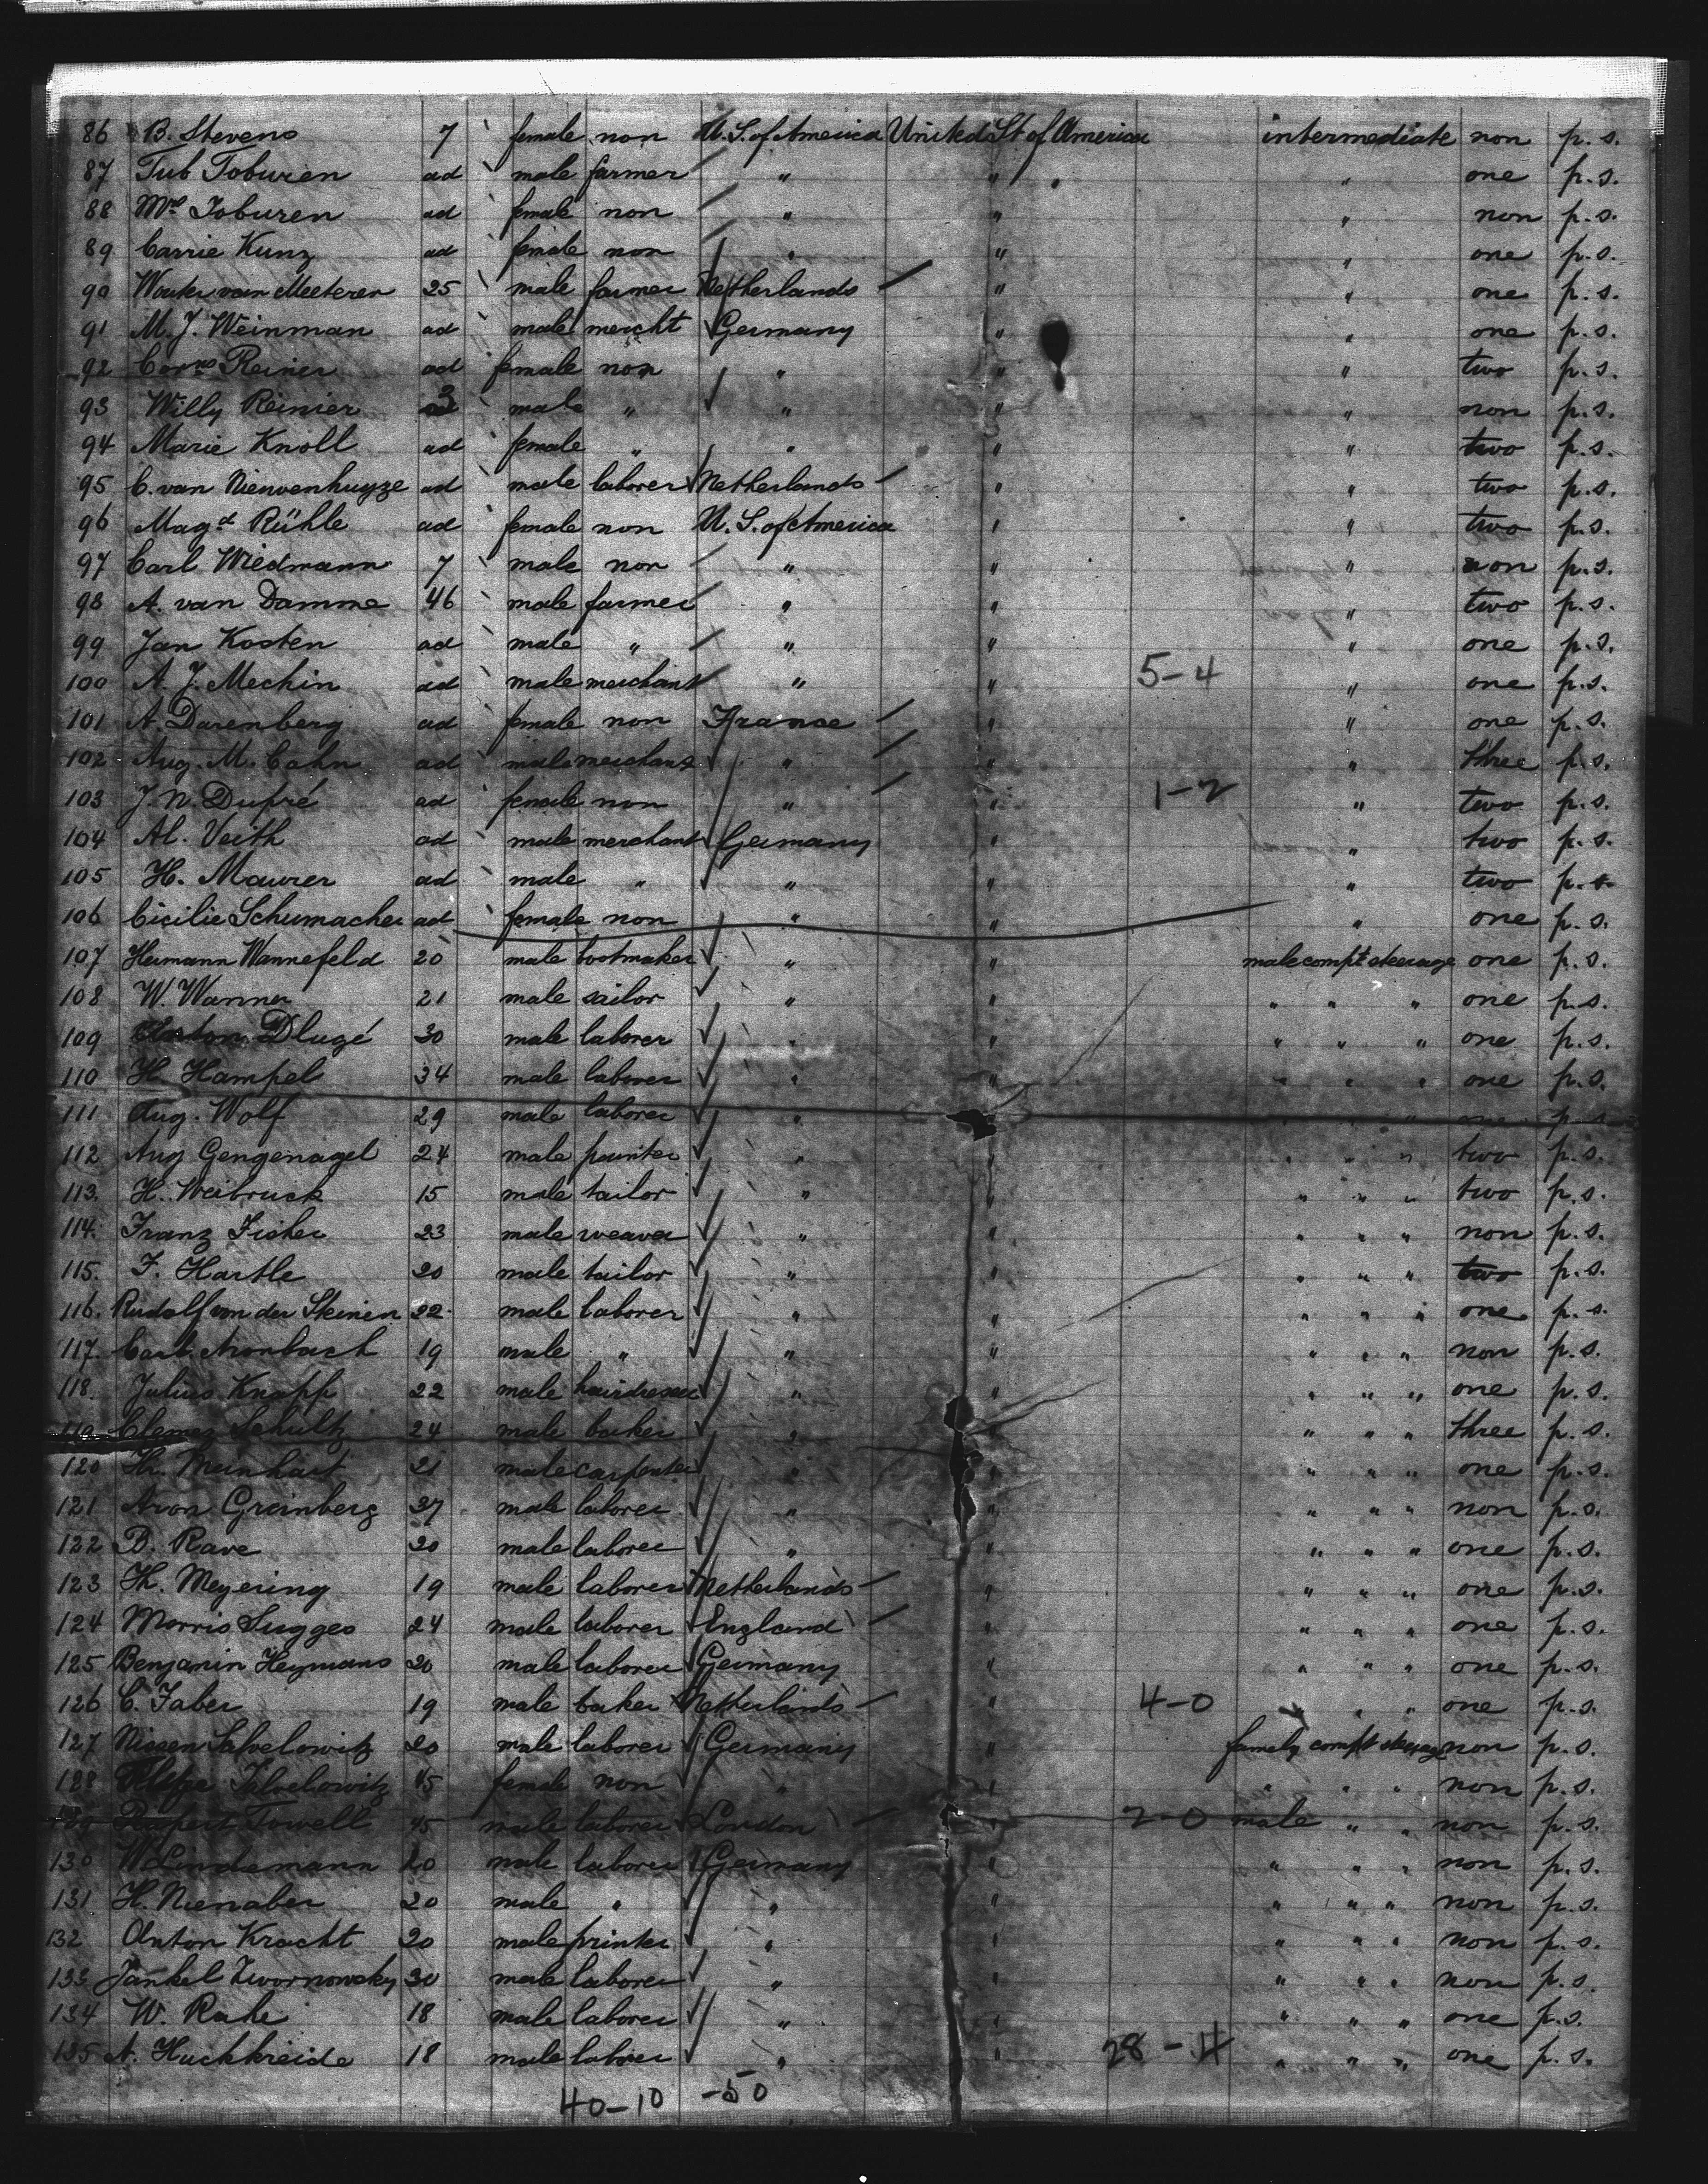 86 B. Stevens 7 female non U. S. of America United St of America intermediate non p. s.
87 Tub Toburen ad male farmer " " " one p. s.
88 Mrs Toburen ad female non " " " non p. s.
89 Carrie Kunz ad female non " " " one p. s.
90 Wouter van Meeteren 25 male farmer Netherlands " " one p. s.
91 M. J. Weinman ad male mercht Germany " " one p. s.
92 Reiner ad female non " " " two p. s.
93 Willy Reinier 3 male " " " " non p. s.
94 Marie Knoll ad female " " " " two p. s.
95 C. van Nieuvenhuyze ad male laborer Netherlands " " two p. s.
96 Magd Rühle ad female non U. S. of America " " two p. s.
97 Carl Wiedmann 7 male non " " " non p. s.
98 A. van Damme 46 male farmer " " " two p. s.
99 Jan Kosten ad male " " " " one p. s.
100 A. J. Mechin ad male merchant " " 5-4 " one p. s.
101 A. Darenberg ad female non France " " one p. s.
102 Aug. M. Cahn ad male merchant " " " three p. s.
103 J. N. Dupré ad female non " " 1-2 " two p. s.
104 Al. Veith ad male merchant Germany " " two p. s.
105 H. Maurer ad male " " " " two p. s.
106 Cicilie Schumacher ad female non " " " one p. s.
107 Hermann Wannefeld 20 male bootmaker " " male compt steerage one p. s.
108 W. Wanner 21 male sailor " " " " " one p. s.
109 Dlugé 30 male laborer " " " " " one p. s.
110 H. Hampel 34 male laborer " " " " " one p. s.
111 Aug. Wolf 29 male laborer " " " " " one p. s.
112 Aug Gengenagel 24 male painter " " " " " two p. s.
113. H. Weibruck 15 male tailor " " " " " two p. s.
114. Franz Fisher 23 male weaver " " " " " non p. s.
115. F. Hartle 20 male tailor " " " " " two p. s.
116. Rudolf von der Skeinen 22 male laborer " " " " " one p. s.
117. Carl Aronbach 19 male " " " " " " non p. s.
118. Julius Knapp 22 male hairdresser " " " " " one p. s.
119 Clemez Schultz 24 male baker " " " " " three p. s.
120 Hr. Meinhart 21 male carpenter " " " " " one p. s.
121 Aron Greinberg 37 male laborer " " " " " non p. s.
122 B. Rave 20 male laborer " " " " " one p. s.
123 H. Meyering 19 male laborer Netherlands " " " " one p. s.
124 Morris Sugges 24 male laborer England " " " " one p. s.
125 Benjamin Heymans 20 male laborer Germany " " " " one p. s.
126 C. Faber 19 male baker Netherlands " 4-0 " " " one p. s.
127 Nissen Salvelowitz 20 male laborer Germany " family compt steerage non p. s.
128 45 female non " " " " " non p. s.
129 Rupert Towell 45 male laborer London " 2-0 male " " non p. s.
130 W Lindemann 20 male laborer Germany " " " " non p. s.
131 H. Nienaber 20 male " " " " " " non p. s.
132 Anton Kracht 20 male printer " " " " " non p. s.
133 Jankel Zwornowsky 30 male laborer " " " " " non p. s.
134 W. Rake 18 male laborer " " " " " one p. s.
135 A. Huckkreide 18 male laborer " " 28-4 " " " one p. s.
40-10 -50